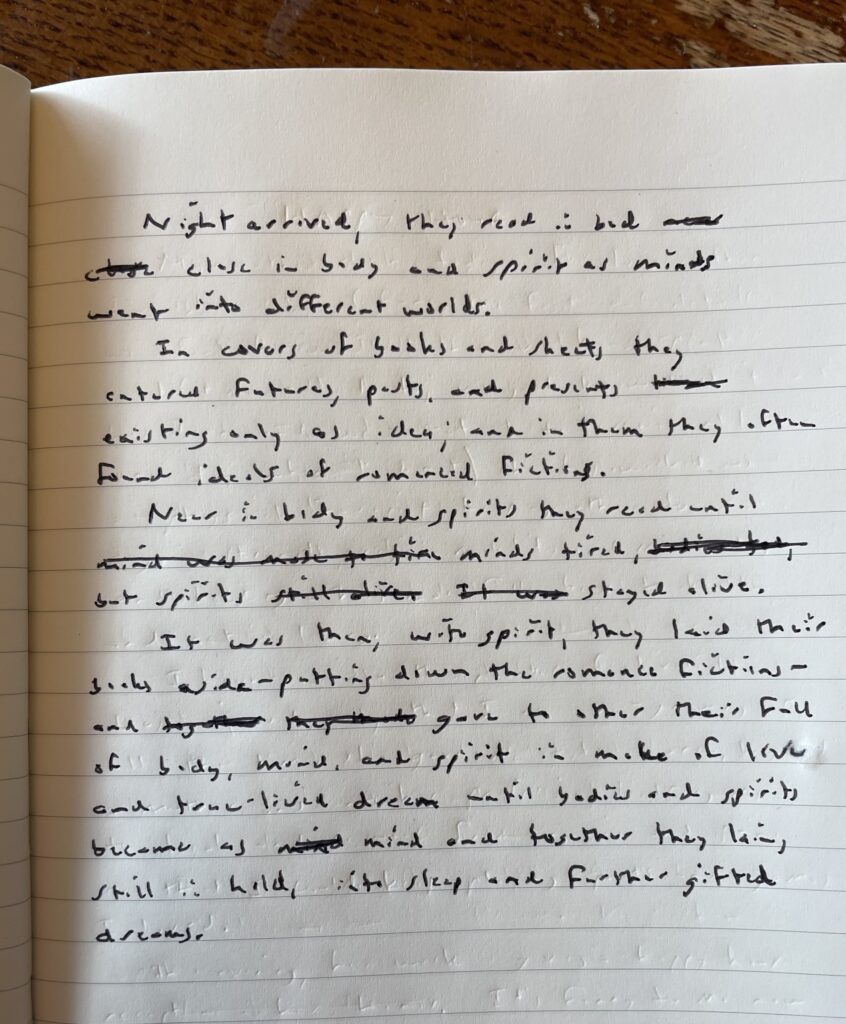 Night arrived, they read in bed
close in body and spirit as minds
went into different worlds.
In covers of books and sheets they
entered futures, pasts, and presents
existing only as idea; and in them they often
found ideals of romanced fictions.
Near in body and spirits they read until
mind was made to time minds tired,
but spirits still alive. It was stayed alive.
It was then, with spirit, they laid their
books aside-putting down the romance fictions-
and together they gave to other their full
of body, mind, and spirit in make of love
and true-lived dream until bodies and spirits
became as mind mind and together they lain,
still in hold, into sleep and further gifted
dreams.